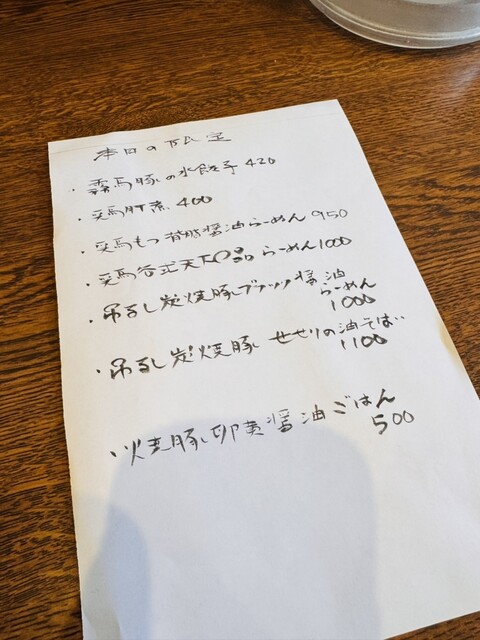 本日の限定
・霧馬豚の水餃子 420
・ 400
・もつ背脂醤油らーめん 950
・らーめん 1000
・吊るし炭焼豚ブラック醤油
らーめん
1000
・吊るし炭焼豚 せせりの油そば
1100
・焼豚卵黄醤油ごはん
500